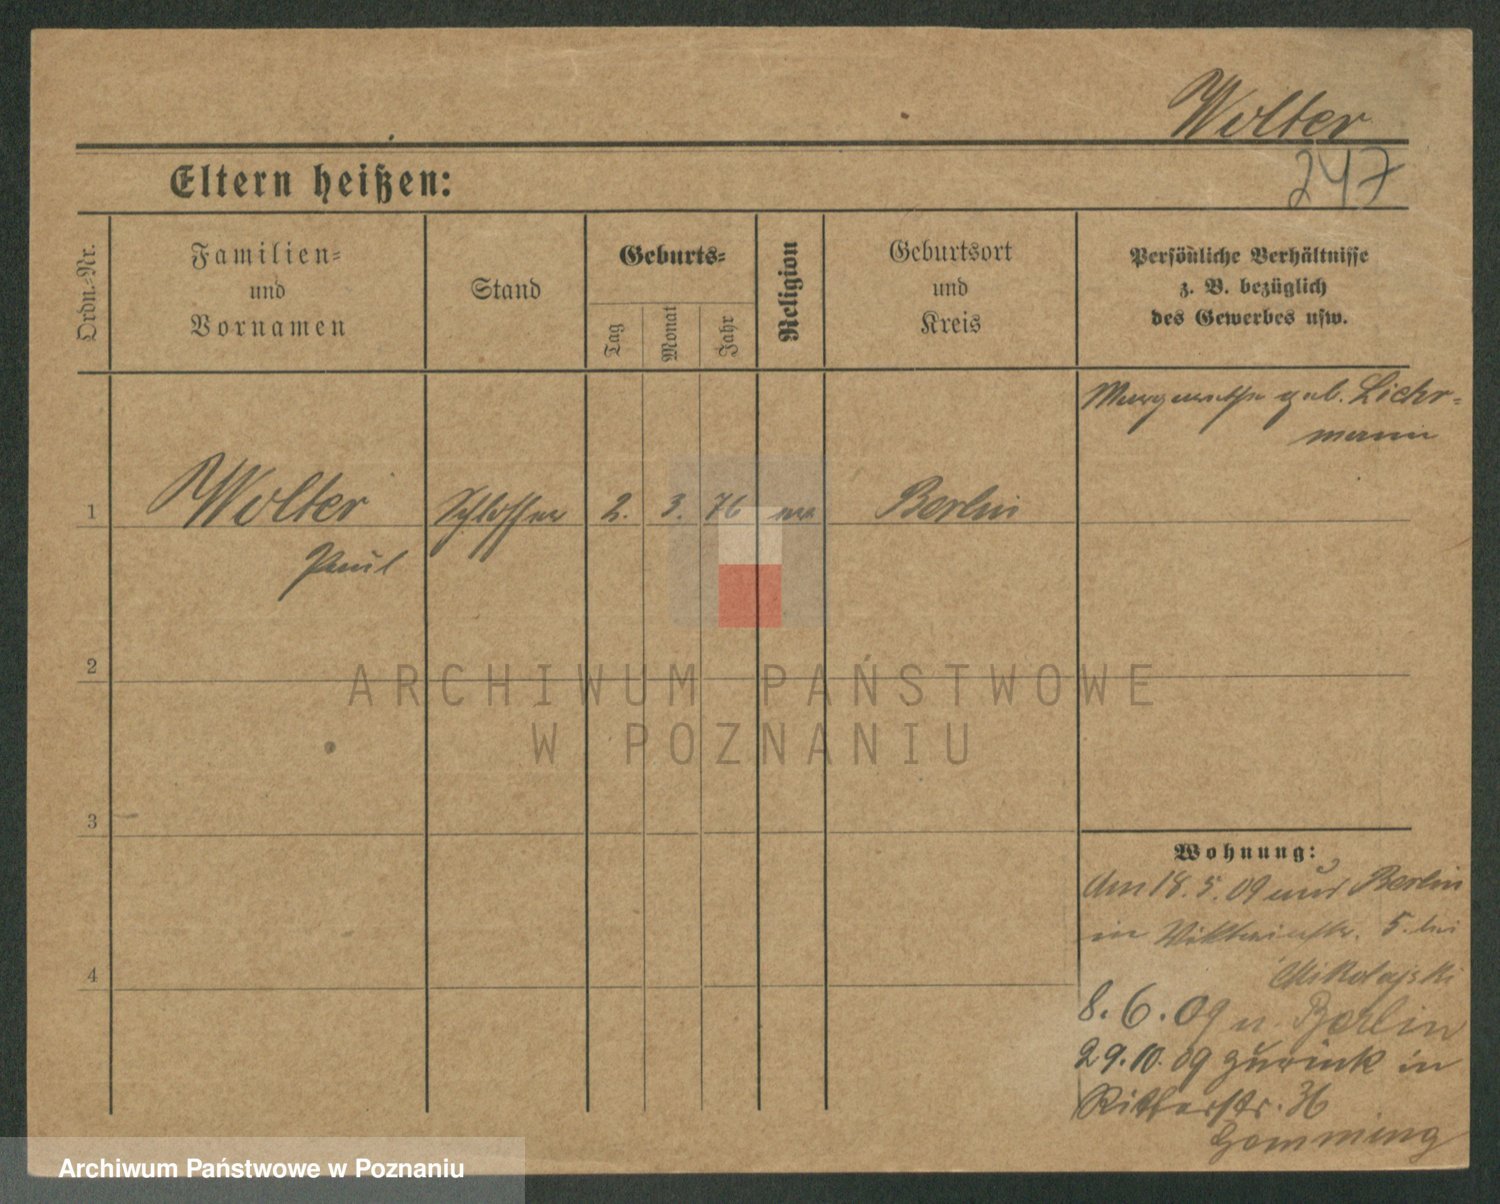 Wolter
247
Eltern heißen:
Ordn.-Nr.
Familien-
und
Vornamen
Stand
Geburts-
Tag
Monat
Jahr
Religion
Geburtsort
und
Kreis
Persönliche Verhältnisse
z. B. bezüglich
des Gewerbes usw.
Margarethe geb. Lichr-
mann
1
Wolter
Schlosser
2.
3.
76
ev.
Berlin
Paul
2
ARCHIWUM PAŃSTWOWE
W POZNANIU
3
Wohnung:
Am 18.5.09 aus Berlin
in Viktoriastr. 5. bei
Mikolajski
4
8.6.09 n. Berlin
29.10.09 zurück in
Ritterstr. 36
Gomming
Archiwum Państwowe w Poznaniu